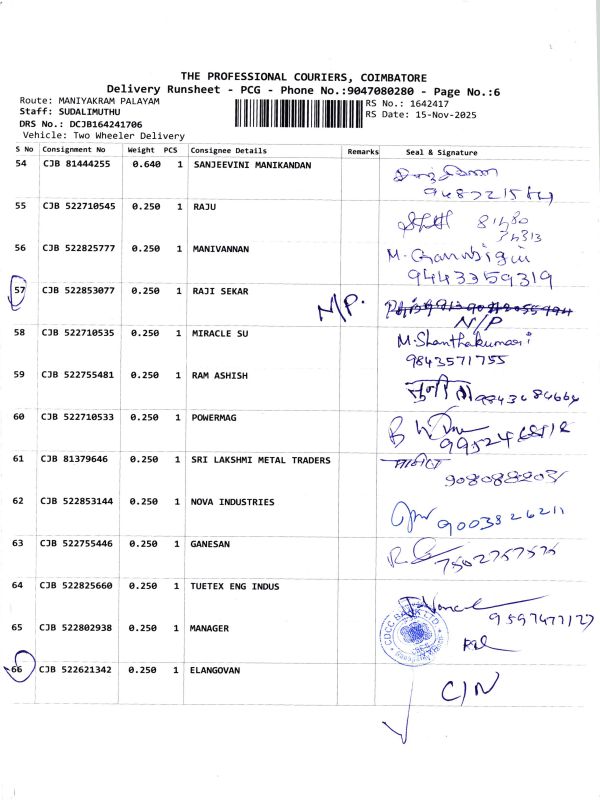 THE PROFESSIONAL COURIERS, COIMBATORE
Delivery Runsheet - PCG - Phone No.:9047080280 - Page No.:6
Route: MANIYAKRAM PALAYAM
Staff: SUDALIMUTHU
DRS No.: DCJB164241706
Vehicle: Two Wheeler Delivery
RS No.: 1642417
RS Date: 15-Nov-2025
S No Consignment No Weight PCS Consignee Details Remarks Seal & Signature
54 CJB 81444255 0.640 1 SANJEEVINI MANIKANDAN
55 CJB 522710545 0.250 1 RAJU
56 CJB 522825777 0.250 1 MANIVANNAN M.
9443359319
57 CJB 522853077 0.250 1 RAJI SEKAR N/P.
N/P
58 CJB 522710535 0.250 1 MIRACLE SU M.Shanthakumari
9843571755
59 CJB 522755481 0.250 1 RAM ASHISH
60 CJB 522710533 0.250 1 POWERMAG
61 CJB 81379646 0.250 1 SRI LAKSHMI METAL TRADERS
62 CJB 522853144 0.250 1 NOVA INDUSTRIES 9003826211
63 CJB 522755446 0.250 1 GANESAN 7502757575
64 CJB 522825660 0.250 1 TUETEX ENG INDUS
9597477127
65 CJB 522802938 0.250 1 MANAGER CDCC BANK LTD.
66 CJB 522621342 0.250 1 ELANGOVAN C/N